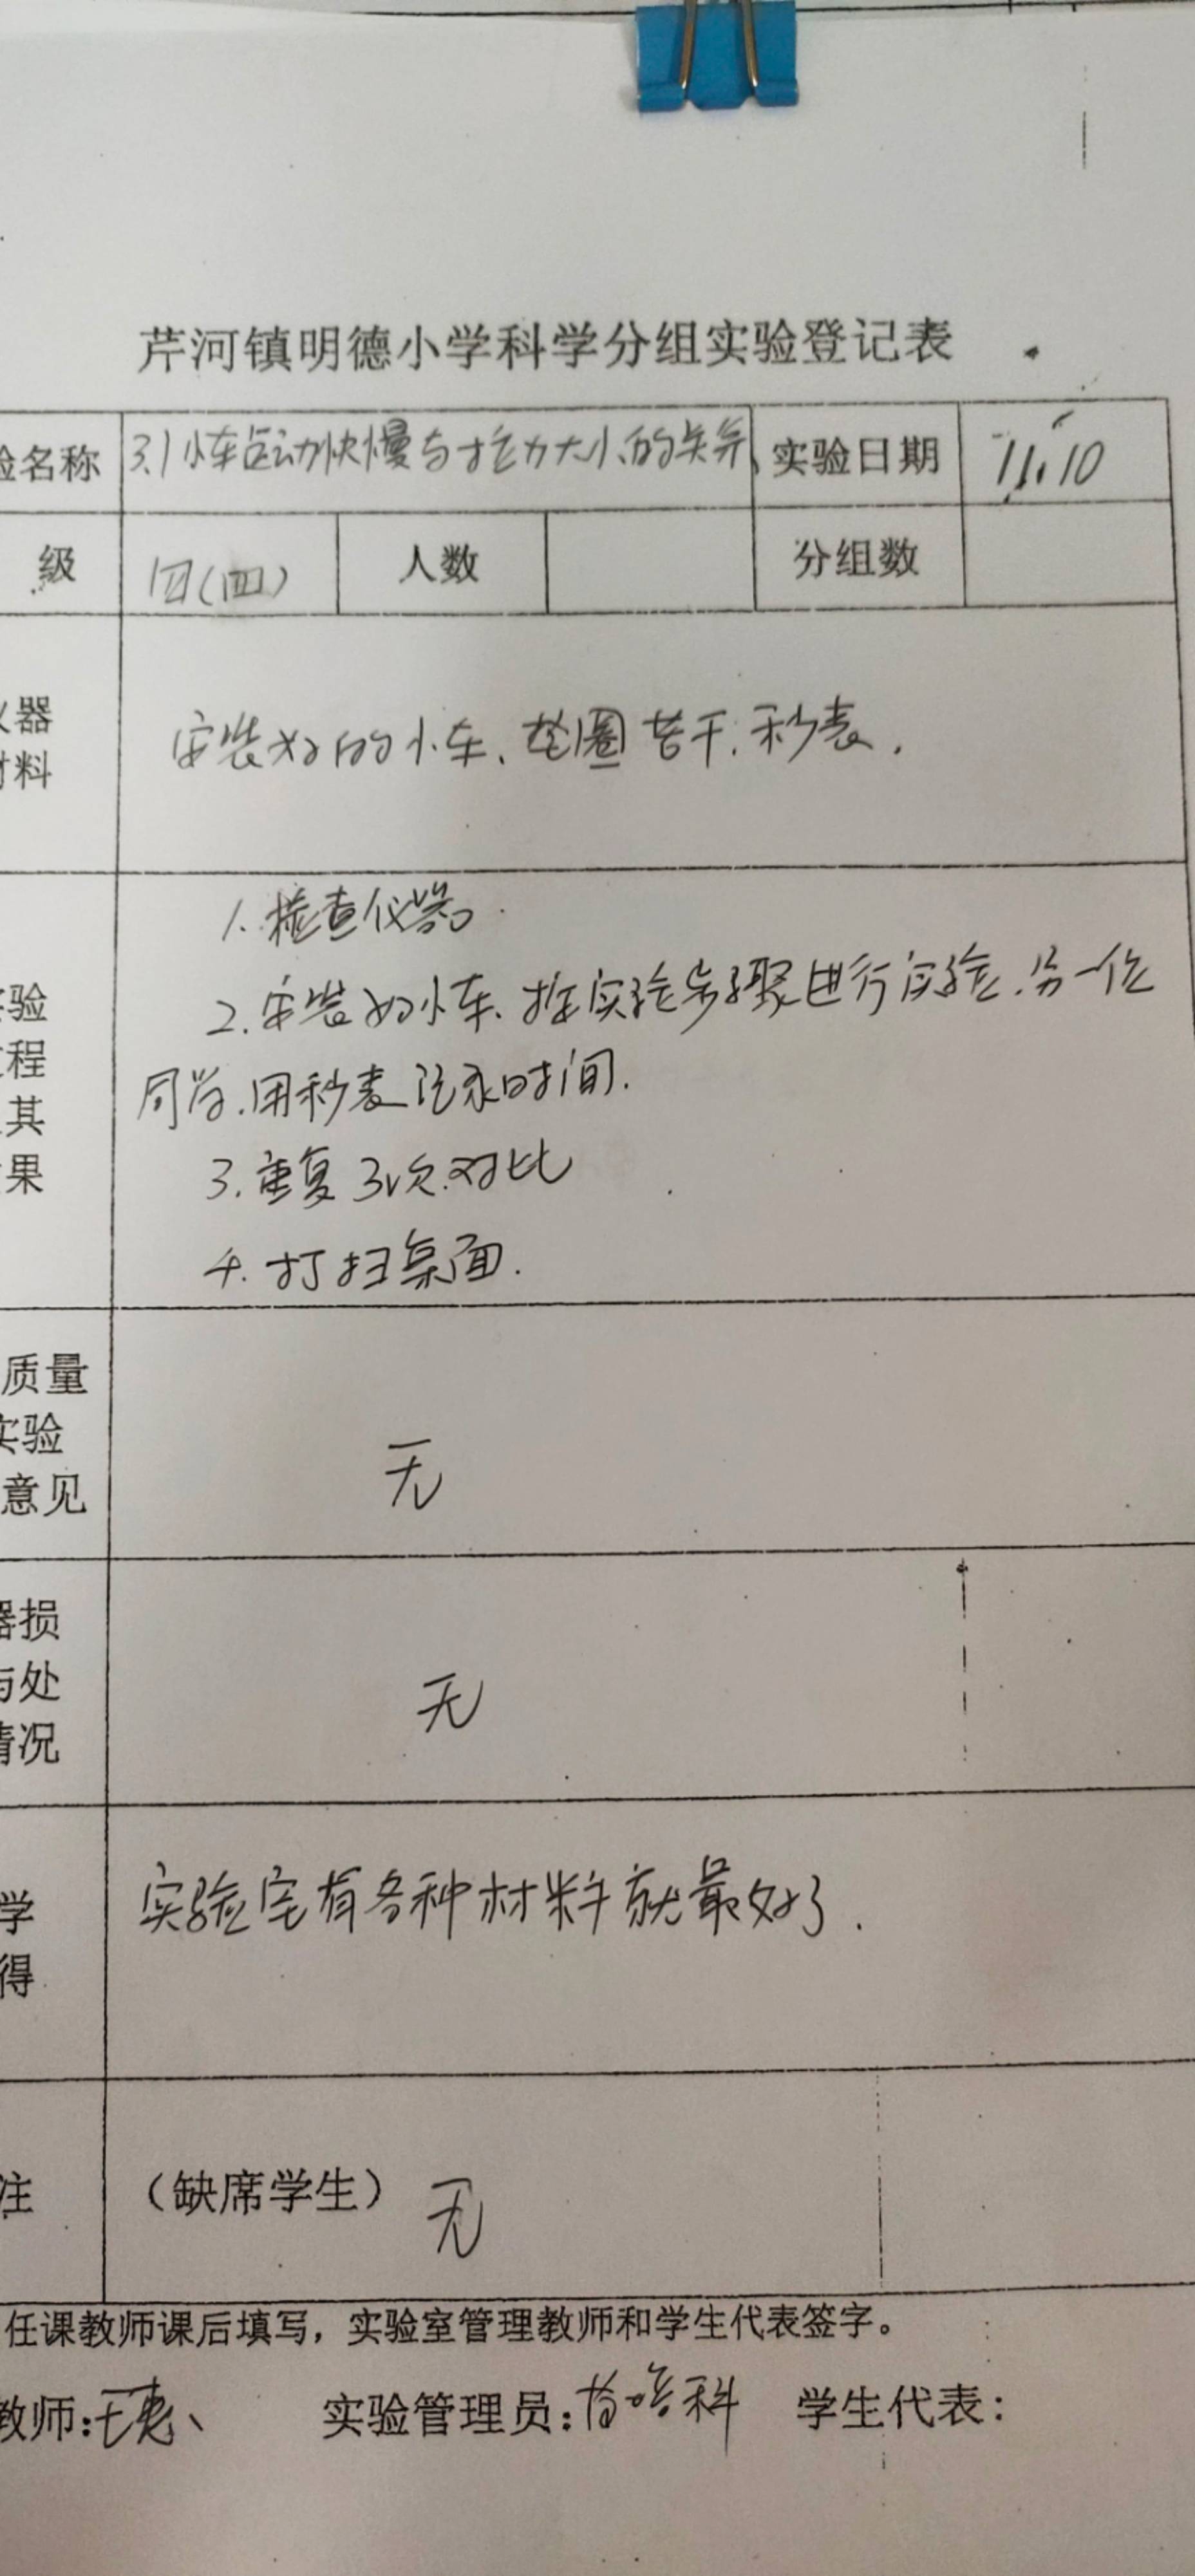 芹河镇明德小学科学分组实验登记表
验名称 3.1小车运动快慢与拉力大小的关系 实验日期 11.10
级 四(四) 人数 分组数
仪器
材料
安装好的小车、垫圈若干、秒表.
实验
过程
其
果
1.检查仪器
2.安装好小车、按实验步骤进行实验.另一位
同学.用秒表记录时间.
3.重复3次.对比
4.打扫桌面.
质量
实验
意见
无
器损
与处
情况
无
学
得
实验室有各种材料就最好了.
注 (缺席学生) 无
任课教师课后填写，实验室管理教师和学生代表签字。
教师: 实验管理员: 学生代表: